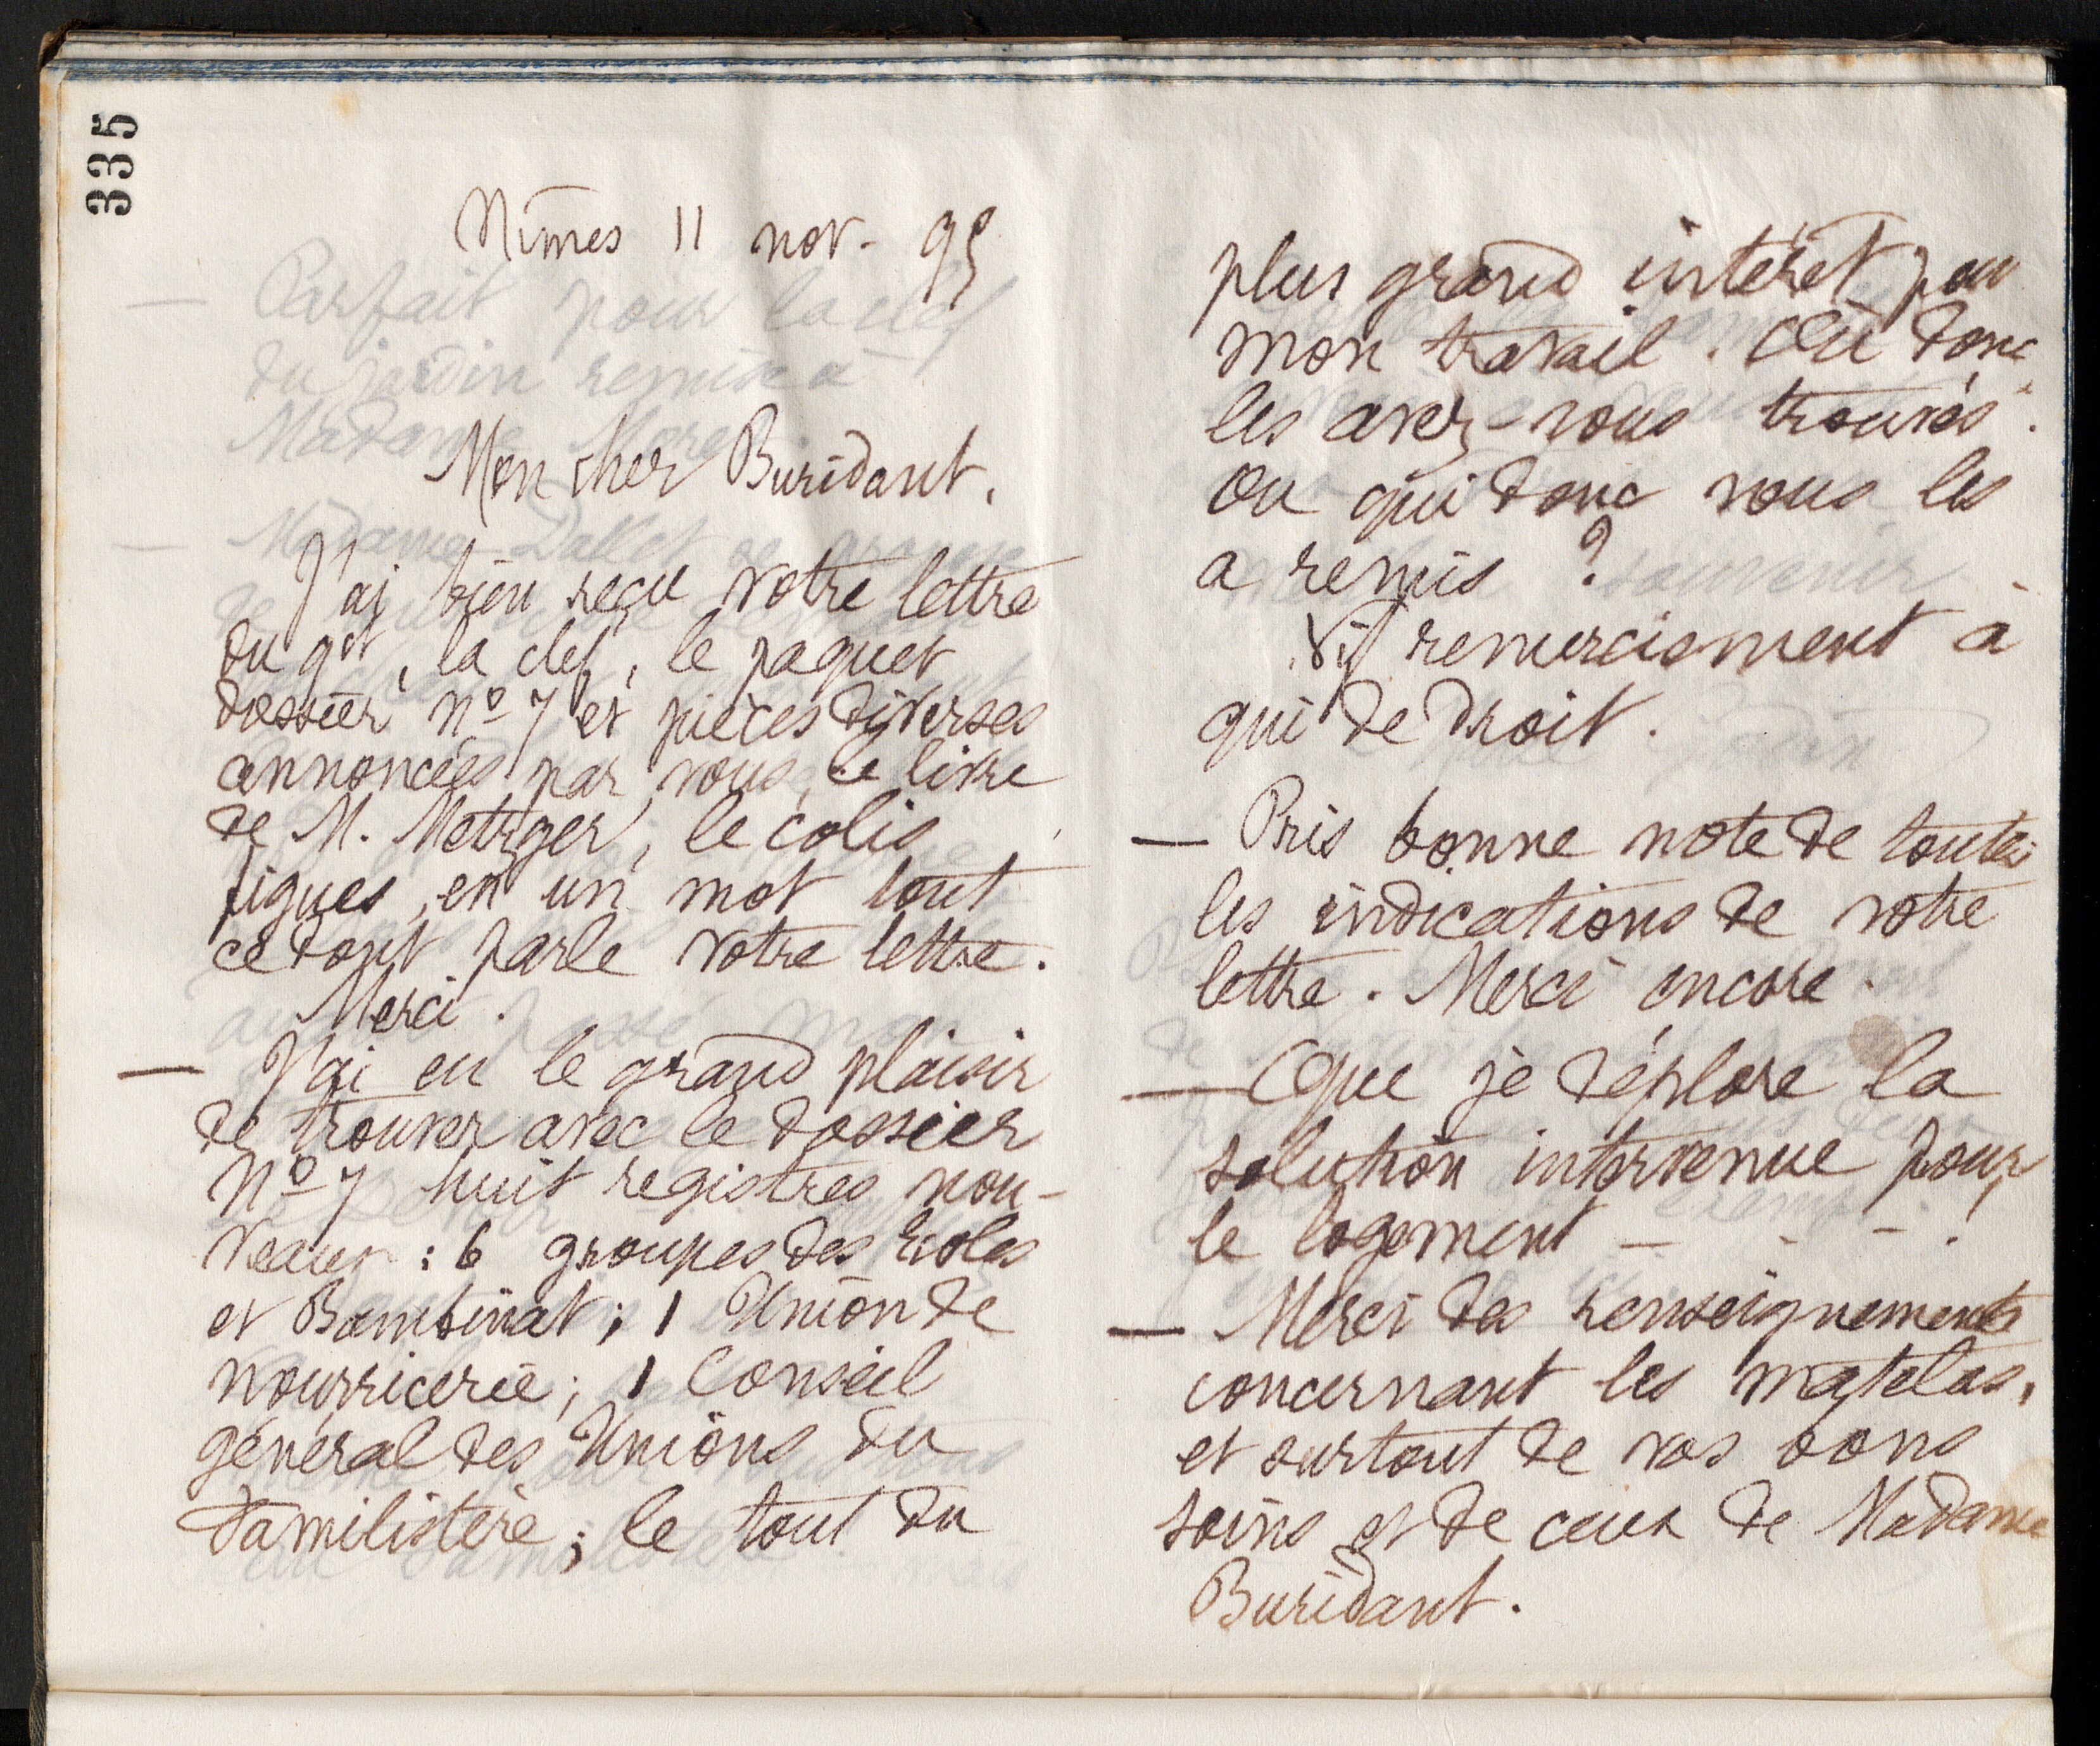 335
Nîmes 11 nov. 95
Mon cher Buridant,
J'ai bien reçu votre lettre
du 9 ct, la clef, le paquet
dossier No 7 et pièces diverses
annoncées par vous, le livre
de M. Metzger, le colis
figues, en un mot tout
ce dont parle votre lettre.
Merci.
— J'ai eu le grand plaisir
de trouver avec le dossier
No 7 huit registres nou-
veaux : 6 groupes des Ecoles
et Bambinat ; 1 Union de
nourricerie ; 1 Conseil
général des Unions du
Familistère ; le tout du
plus grand intérêt pour
mon travail. Où donc
les avez-vous trouvés.
Ou qui donc vous les
a remis ?
Vif remerciement à
qui de droit.
— Pris bonne note de toutes
les indications de votre
lettre. Merci encore.
— Que je déplore la
solution intervenue pour
le logement - - - !
— Merci des renseignements
concernant les matelas,
et surtout de vos bons
soins et de ceux de Madame
Buridant.